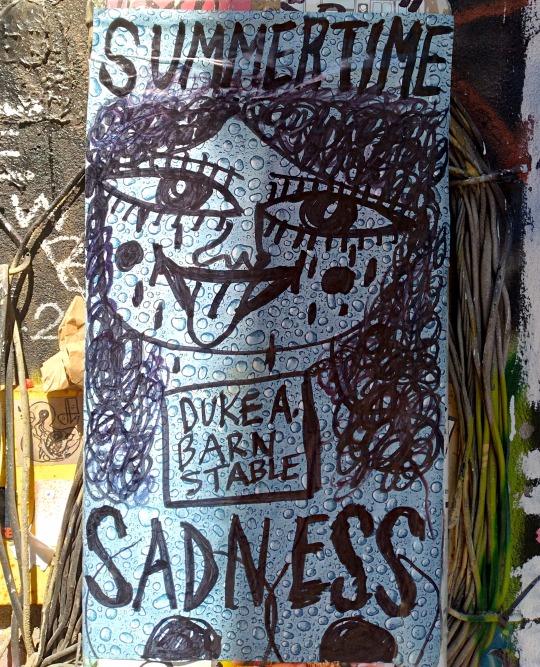 SUMMERTIME
DUKE A.
BARN
STABLE
SADNESS